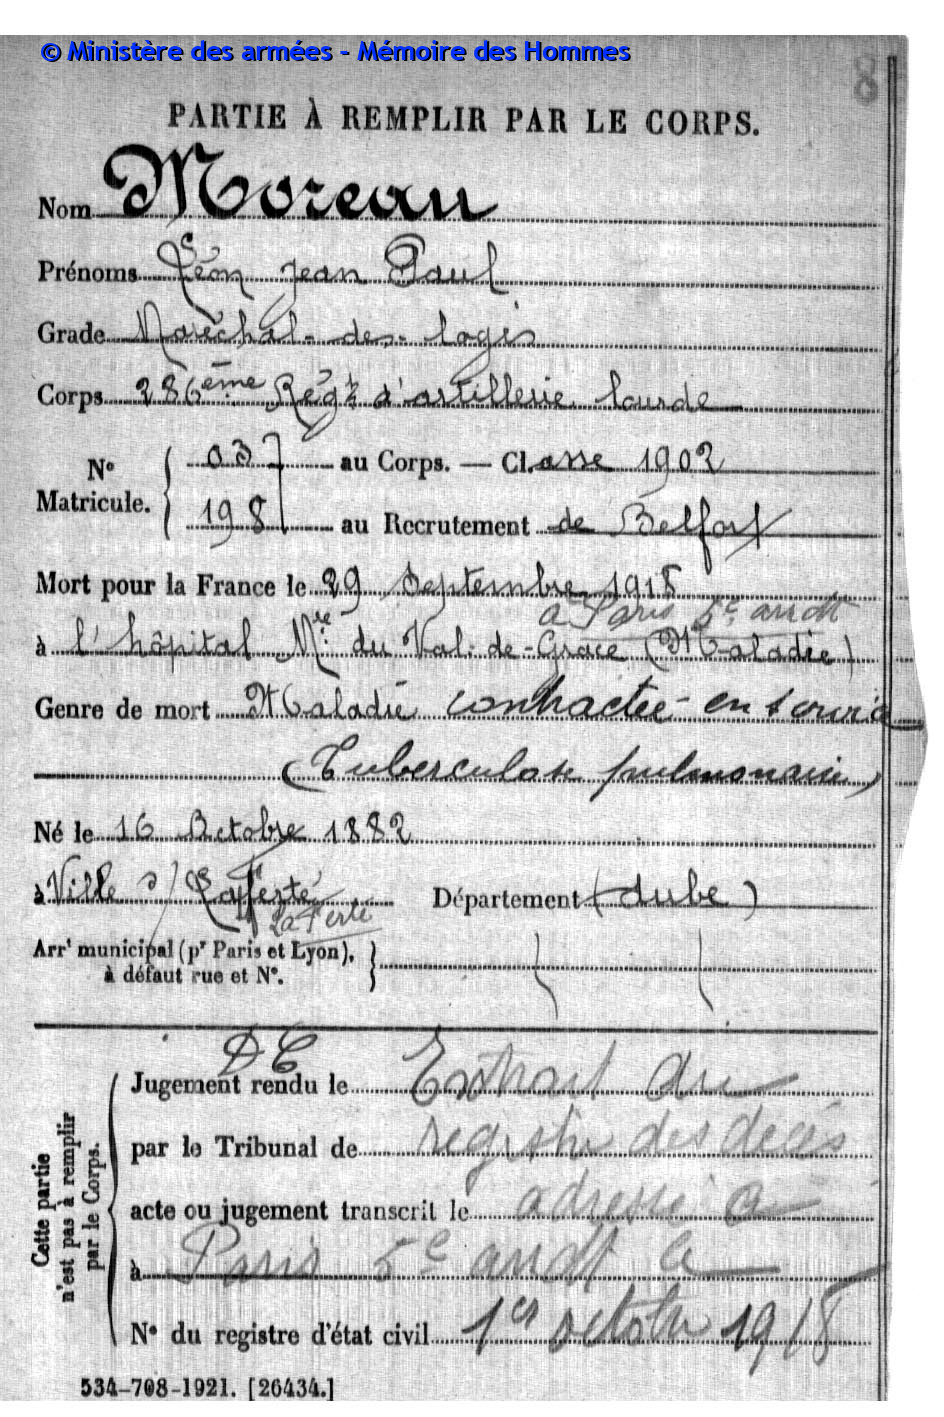 © Ministère des armées - Mémoire des Hommes
8
PARTIE À REMPLIR PAR LE CORPS.
Nom Moreau
Prénoms Léon Jean Paul
Grade Maréchal-des-logis
Corps 286ème Régt d'artillerie lourde
N° Matricule. 03 au Corps. — Classe 1902
198 au Recrutement de Belfort
Mort pour la France le 29 Septembre 1918
à Paris 5e arrdt
à l'hôpital Mre du Val-de-Grâce (Maladie)
Genre de mort Maladie contractée en service
(Tuberculose pulmonaire)
Né le 16 Octobre 1882
à Ville s/ Laferté Département (Aube)
La Ferté
Arrt municipal (pr Paris et Lyon),
à défaut rue et N°.
DC
Cette partie n'est pas à remplir par le Corps.
Jugement rendu le Extrait du
par le Tribunal de registre des décès
acte ou jugement transcrit le adressé à
à Paris 5e arrdt le
N° du registre d'état civil 1er octobre 1918
534-708-1921. [26434.]